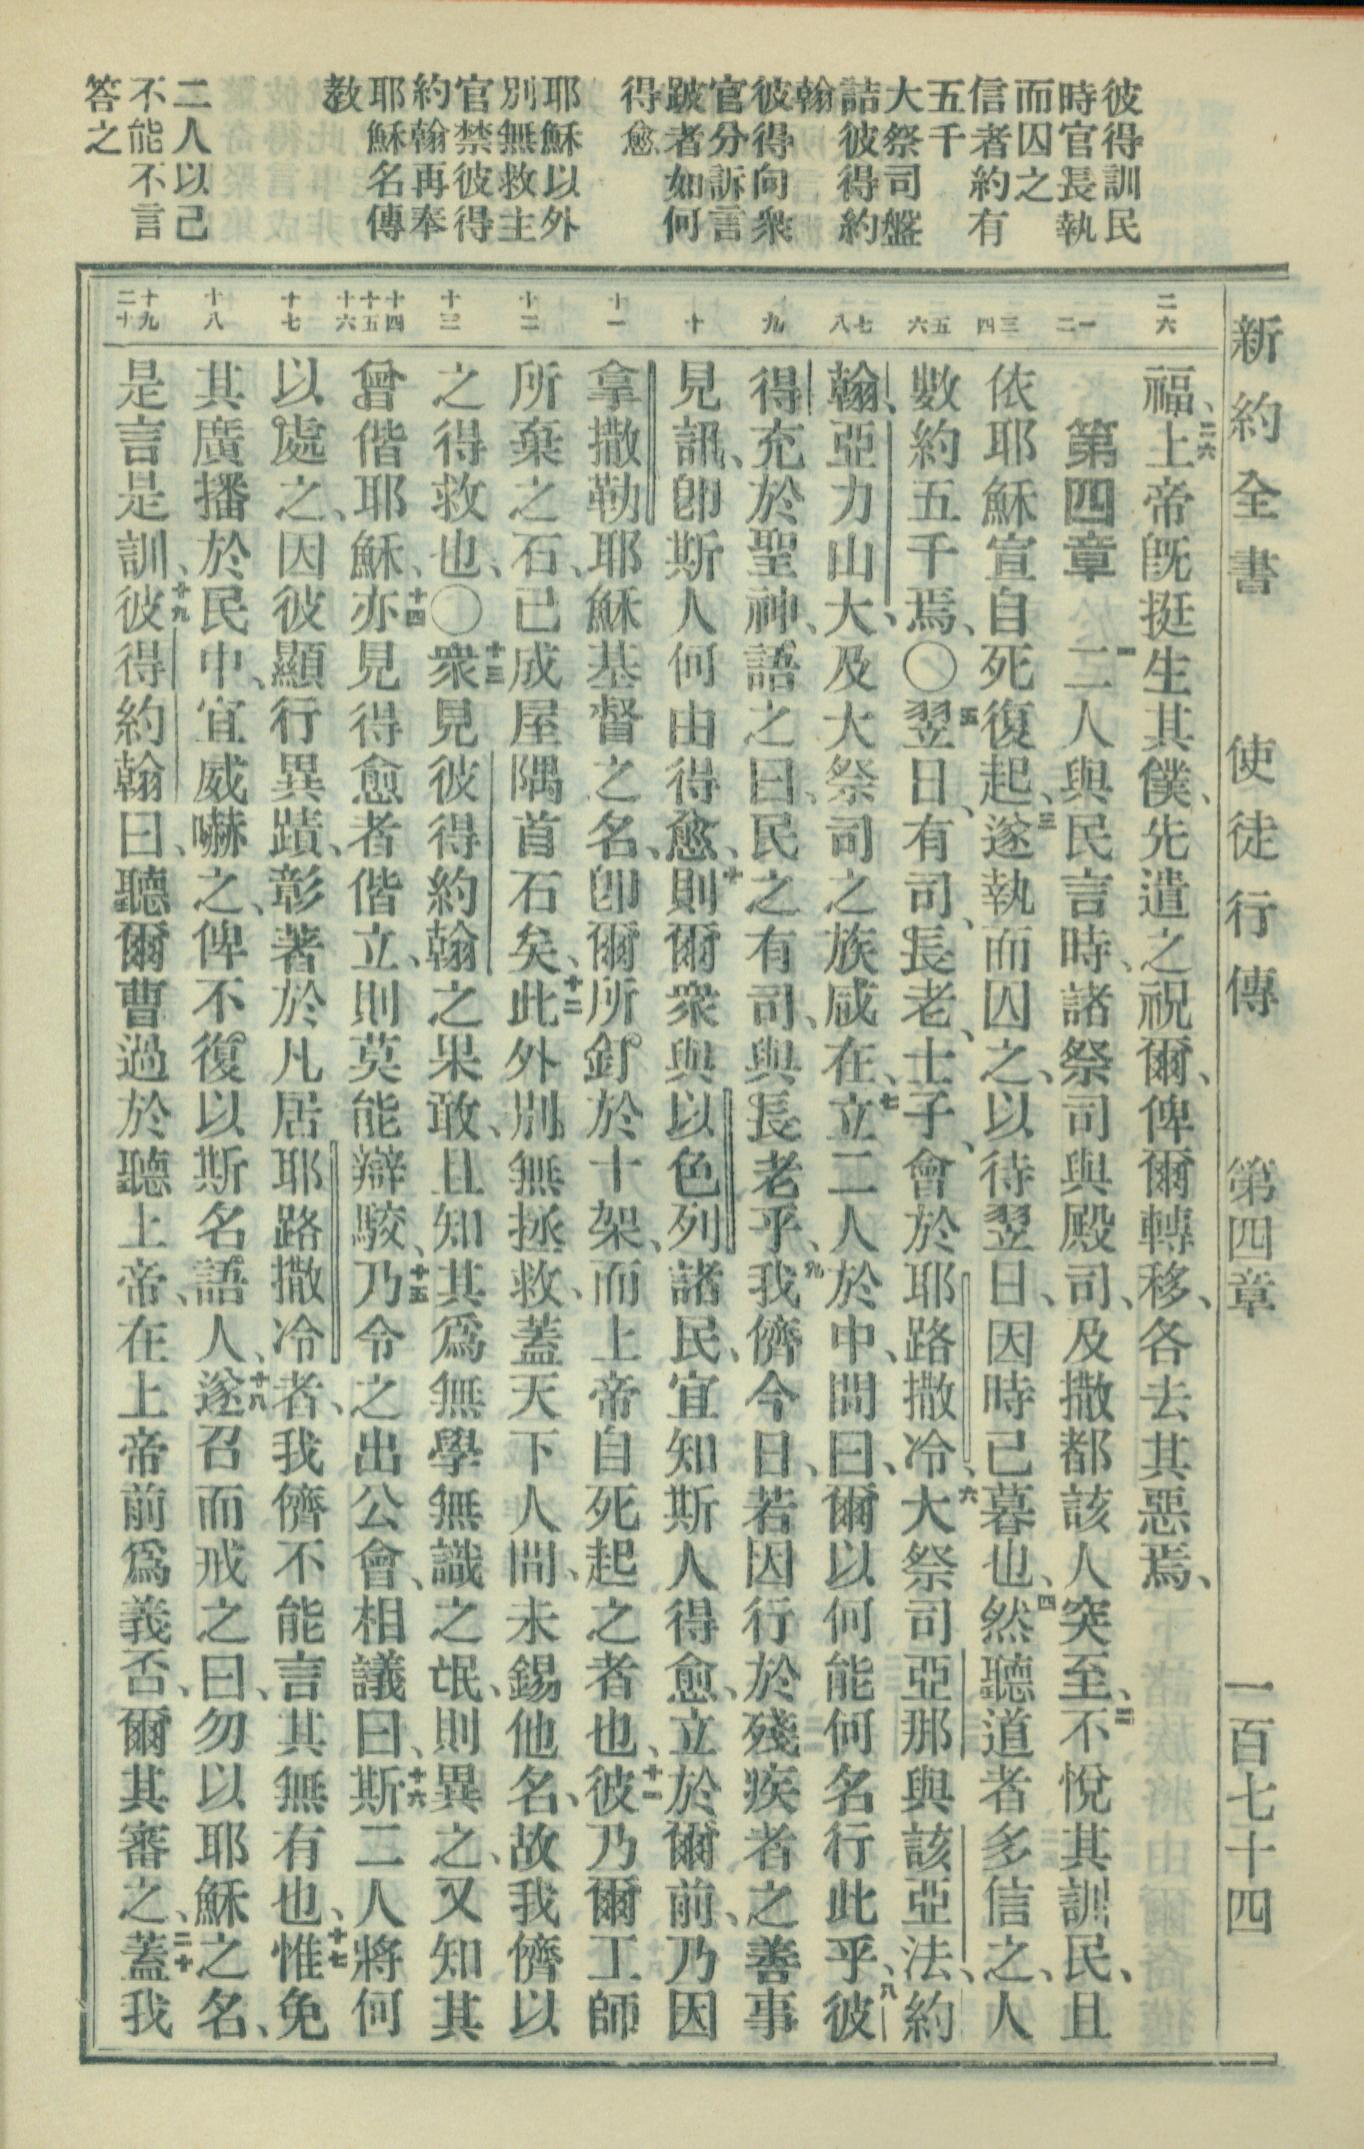 新約全書　使徒行傳　第四章　一百七十四
彼得訓民
時官長執
而囚之
信者約有
五千
大祭司盤
詰彼得約
翰
彼得向衆
官分訴言
跛者如何
得愈
耶穌以外
別無救主
官禁彼得
約翰再奉
耶穌名傳
教
二人以己
不能不言
答之
二六
一二
三四
五六
七八
九
十
十一
十二
十三
十四十五十六
十七
十八
十九二十
福、二六上帝旣挺生其僕、先遣之祝爾、俾爾轉移、各去其惡焉、
第四章　一二人與民言時、諸祭司與殿司、及撒都該人突至、二不悅其訓民、且
依耶穌宣自死復起、三遂執而囚之、以待翌日、因時已暮也、四然聽道者多信之、人
數約五千焉、〇五翌日、有司、長老、士子、會於耶路撒冷、六大祭司亞那與該亞法、約
翰、亞力山大、及大祭司之族咸在、七立二人於中、問曰、爾以何能何名行此乎、八彼
得充於聖神、語之曰、民之有司、與長老乎、九我儕今日、若因行於殘疾者之善事
見訊、卽斯人何由得愈、十則爾衆與以色列諸民、宜知斯人得愈、立於爾前、乃因
拿撒勒耶穌基督之名、卽爾所釘於十架、而上帝自死起之者也、十一彼乃爾工師
所棄之石、已成屋隅首石矣、十二此外別無拯救、蓋天下人間、未錫他名、故我儕以
之得救也、〇十三衆見彼得約翰之果敢、且知其爲無學無識之氓、則異之、又知其
曾偕耶穌、十四亦見得愈者偕立、則莫能辯駮、十五乃令之出公會、相議曰、十六斯二人將何
以處之、因彼顯行異蹟、彰著於凡居耶路撒冷者、我儕不能言其無有也、十七惟免
其廣播於民中、宜威嚇之、俾不復以斯名語人、十八遂召而戒之曰、勿以耶穌之名、
是言是訓、十九彼得約翰曰、聽爾曹過於聽上帝、在上帝前爲義否、爾其審之、二十蓋我